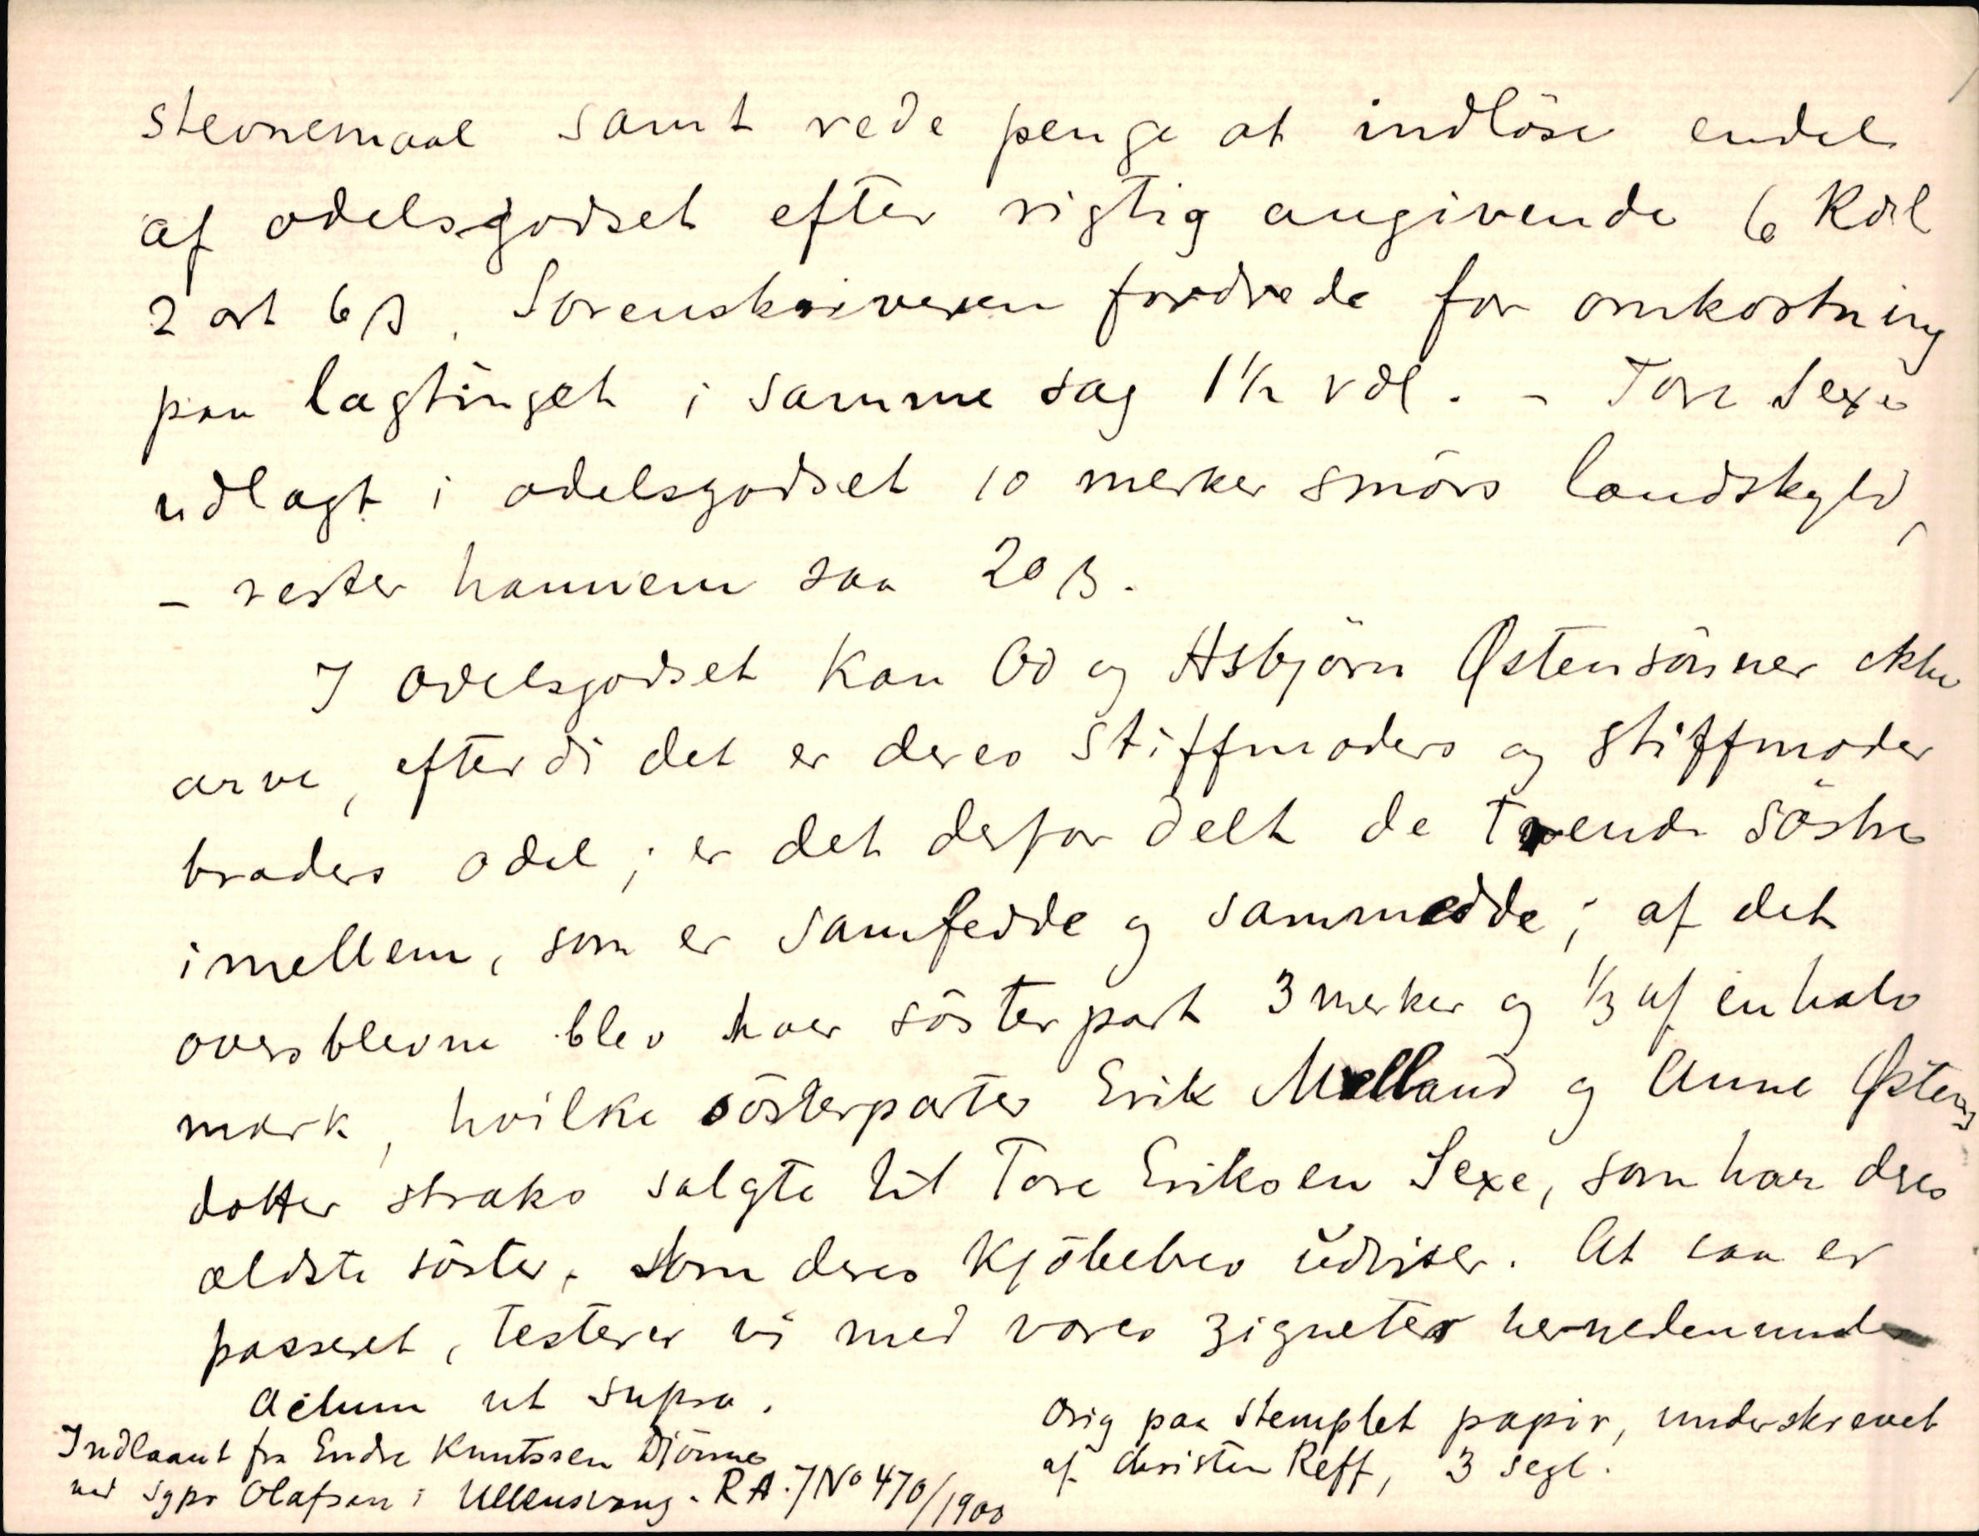 stevnemaal samt rede penge at indlöse endel
af odelsgodset efter rigtig angivende 6 Rdl
2 ort 6 β. Sorenskriveren fordrede for omkostning
paa lagtinget i samme sag 1 1/2 rdl. – Tore Sexe
udlagt i odelsgodset 10 merker smörs landskyld,
– rester hannem saa 20 β.
I odelsgodset kan Od og Asbjörn Østensönner ikke
arve, efterdi det er deres stiffmoders og stiffmoder
broders odel; er det derfor delt de trende söstre
imellem, som er samfedde og sammedde; af det
oversblevne blev hver söster part 3 merker og 1/3 af en halv
mark, hvilke sösterparter Erik Melland og Anne Østens
dotter straks solgte til Tore Eriksen Sexe, som har deres
ældste söster, som deres kjöbebrev udviser. At saa er
passeret, testerer vi med vores zigneter hernedenunder
Actum ut supra.
Orig paa stemplet papir, underskrevet
af Christen Reff, 3 segl.
Indlaant fra Endre Knutssen Djönne
ved sgpr Olafsen i Ullensvang. R A. J No 470/1900